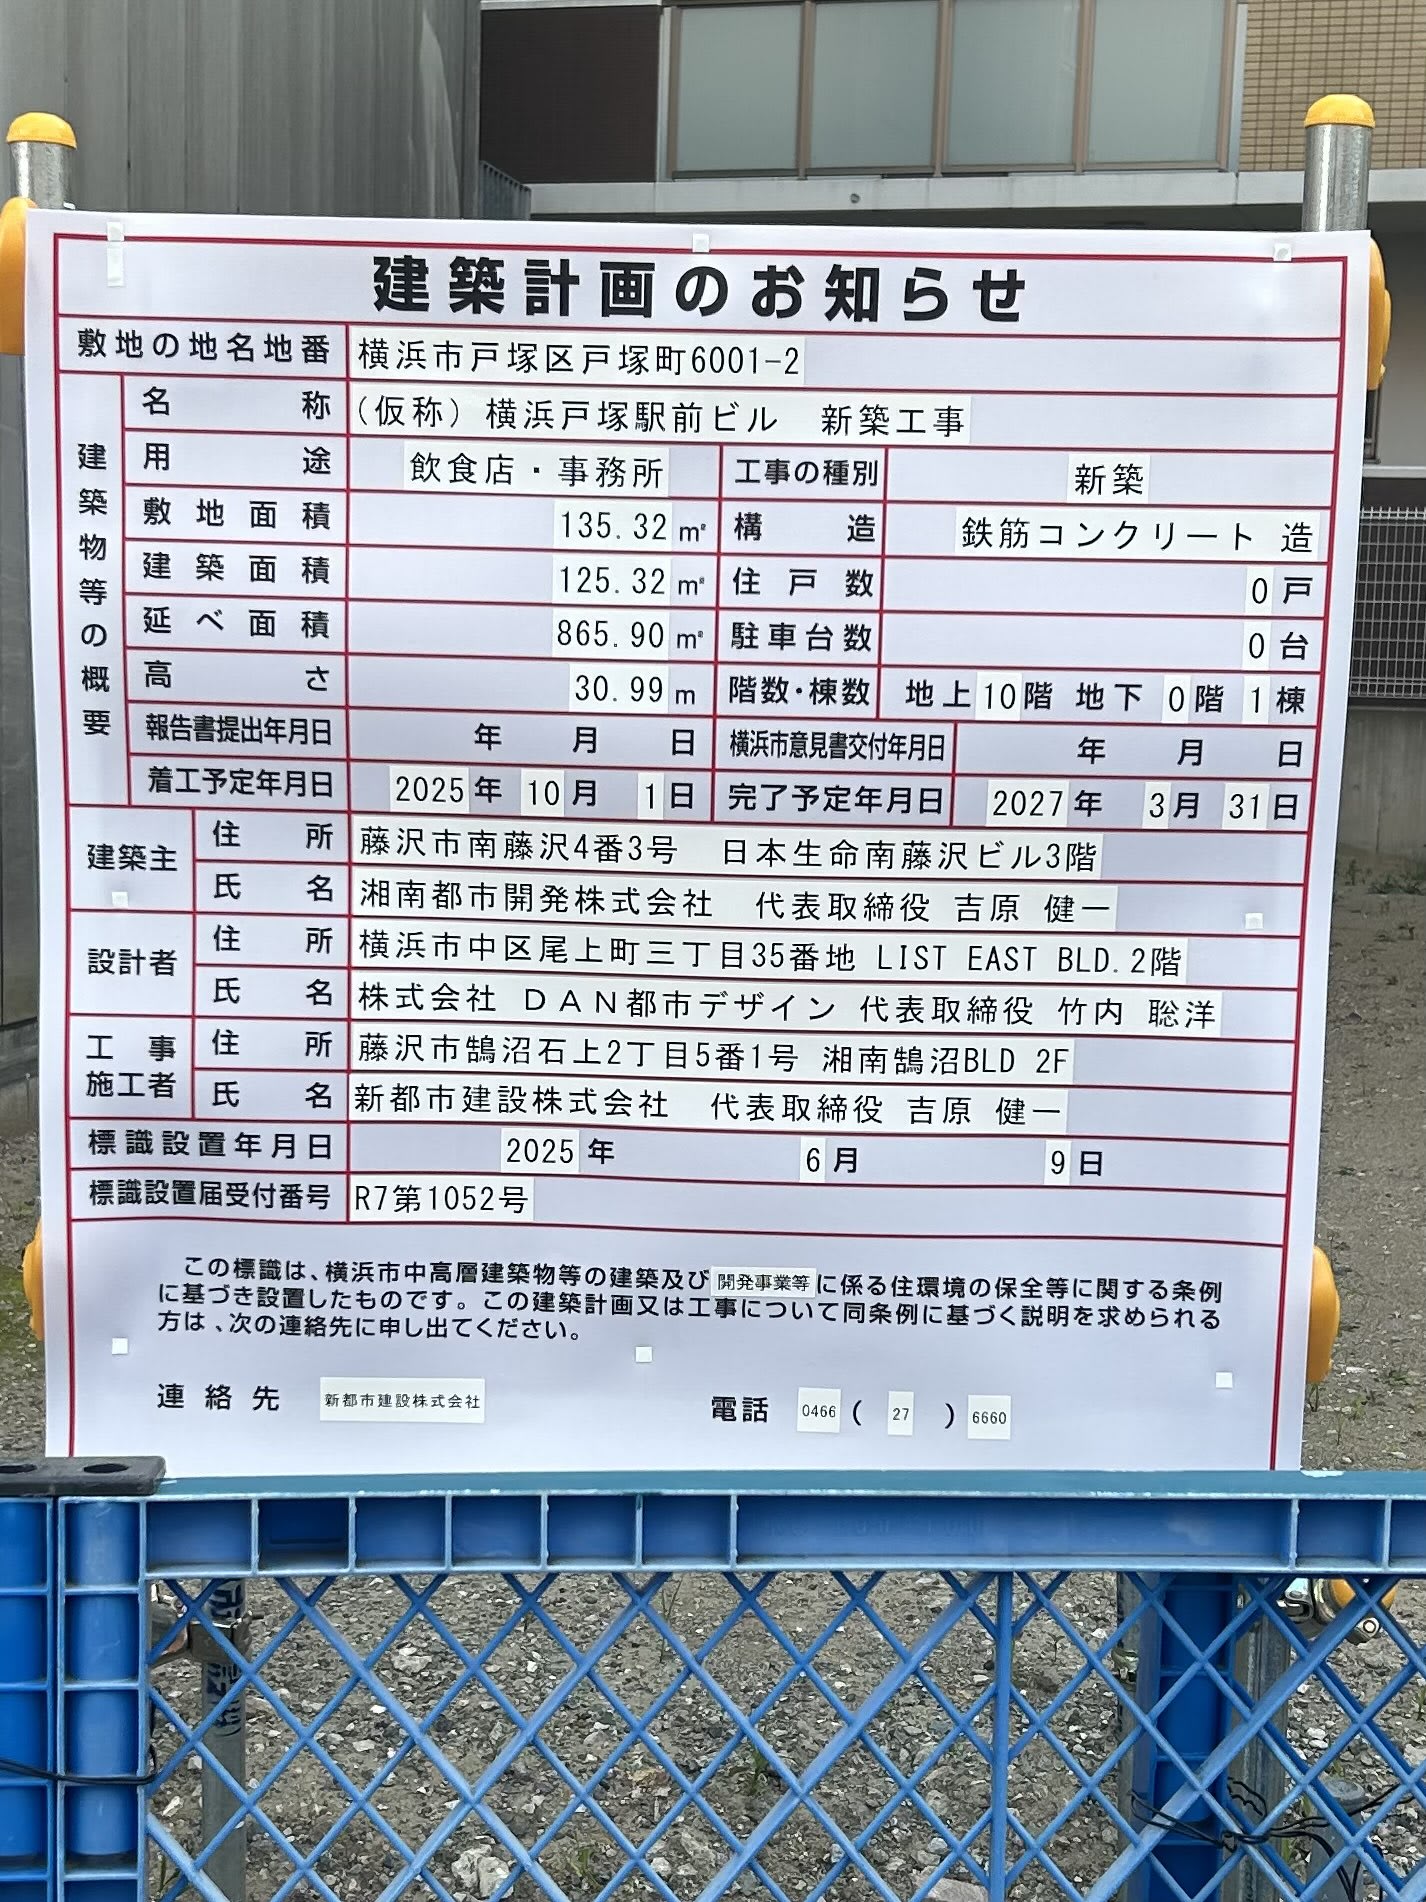 建築計画のお知らせ
敷地の地名地番 横浜市戸塚区戸塚町6001-2
建築物等の概要
名称 (仮称) 横浜戸塚駅前ビル 新築工事
用途 飲食店・事務所 工事の種別 新築
敷地面積 135.32 ㎡ 構造 鉄筋コンクリート 造
建築面積 125.32 ㎡ 住戸数 0 戸
延べ面積 865.90 ㎡ 駐車台数 0 台
高さ 30.99 m 階数・棟数 地上 10 階 地下 0 階 1 棟
報告書提出年月日 年 月 日 横浜市意見書交付年月日 年 月 日
着工予定年月日 2025 年 10 月 1 日 完了予定年月日 2027 年 3 月 31 日
建築主 住所 藤沢市南藤沢4番3号 日本生命南藤沢ビル3階
氏名 湘南都市開発株式会社 代表取締役 吉原 健一
設計者 住所 横浜市中区尾上町三丁目35番地 LIST EAST BLD.2階
氏名 株式会社 DAN都市デザイン 代表取締役 竹内 聡洋
工事施工者 住所 藤沢市鵠沼石上2丁目5番1号 湘南鵠沼BLD 2F
氏名 新都市建設株式会社 代表取締役 吉原 健一
標識設置年月日 2025 年 6 月 9 日
標識設置届受付番号 R7第1052号
この標識は、横浜市中高層建築物等の建築及び開発事業等に係る住環境の保全等に関する条例
に基づき設置したものです。この建築計画又は工事について同条例に基づく説明を求められる
方は、次の連絡先に申し出てください。
連絡先 新都市建設株式会社 電話 0466 ( 27 ) 6660